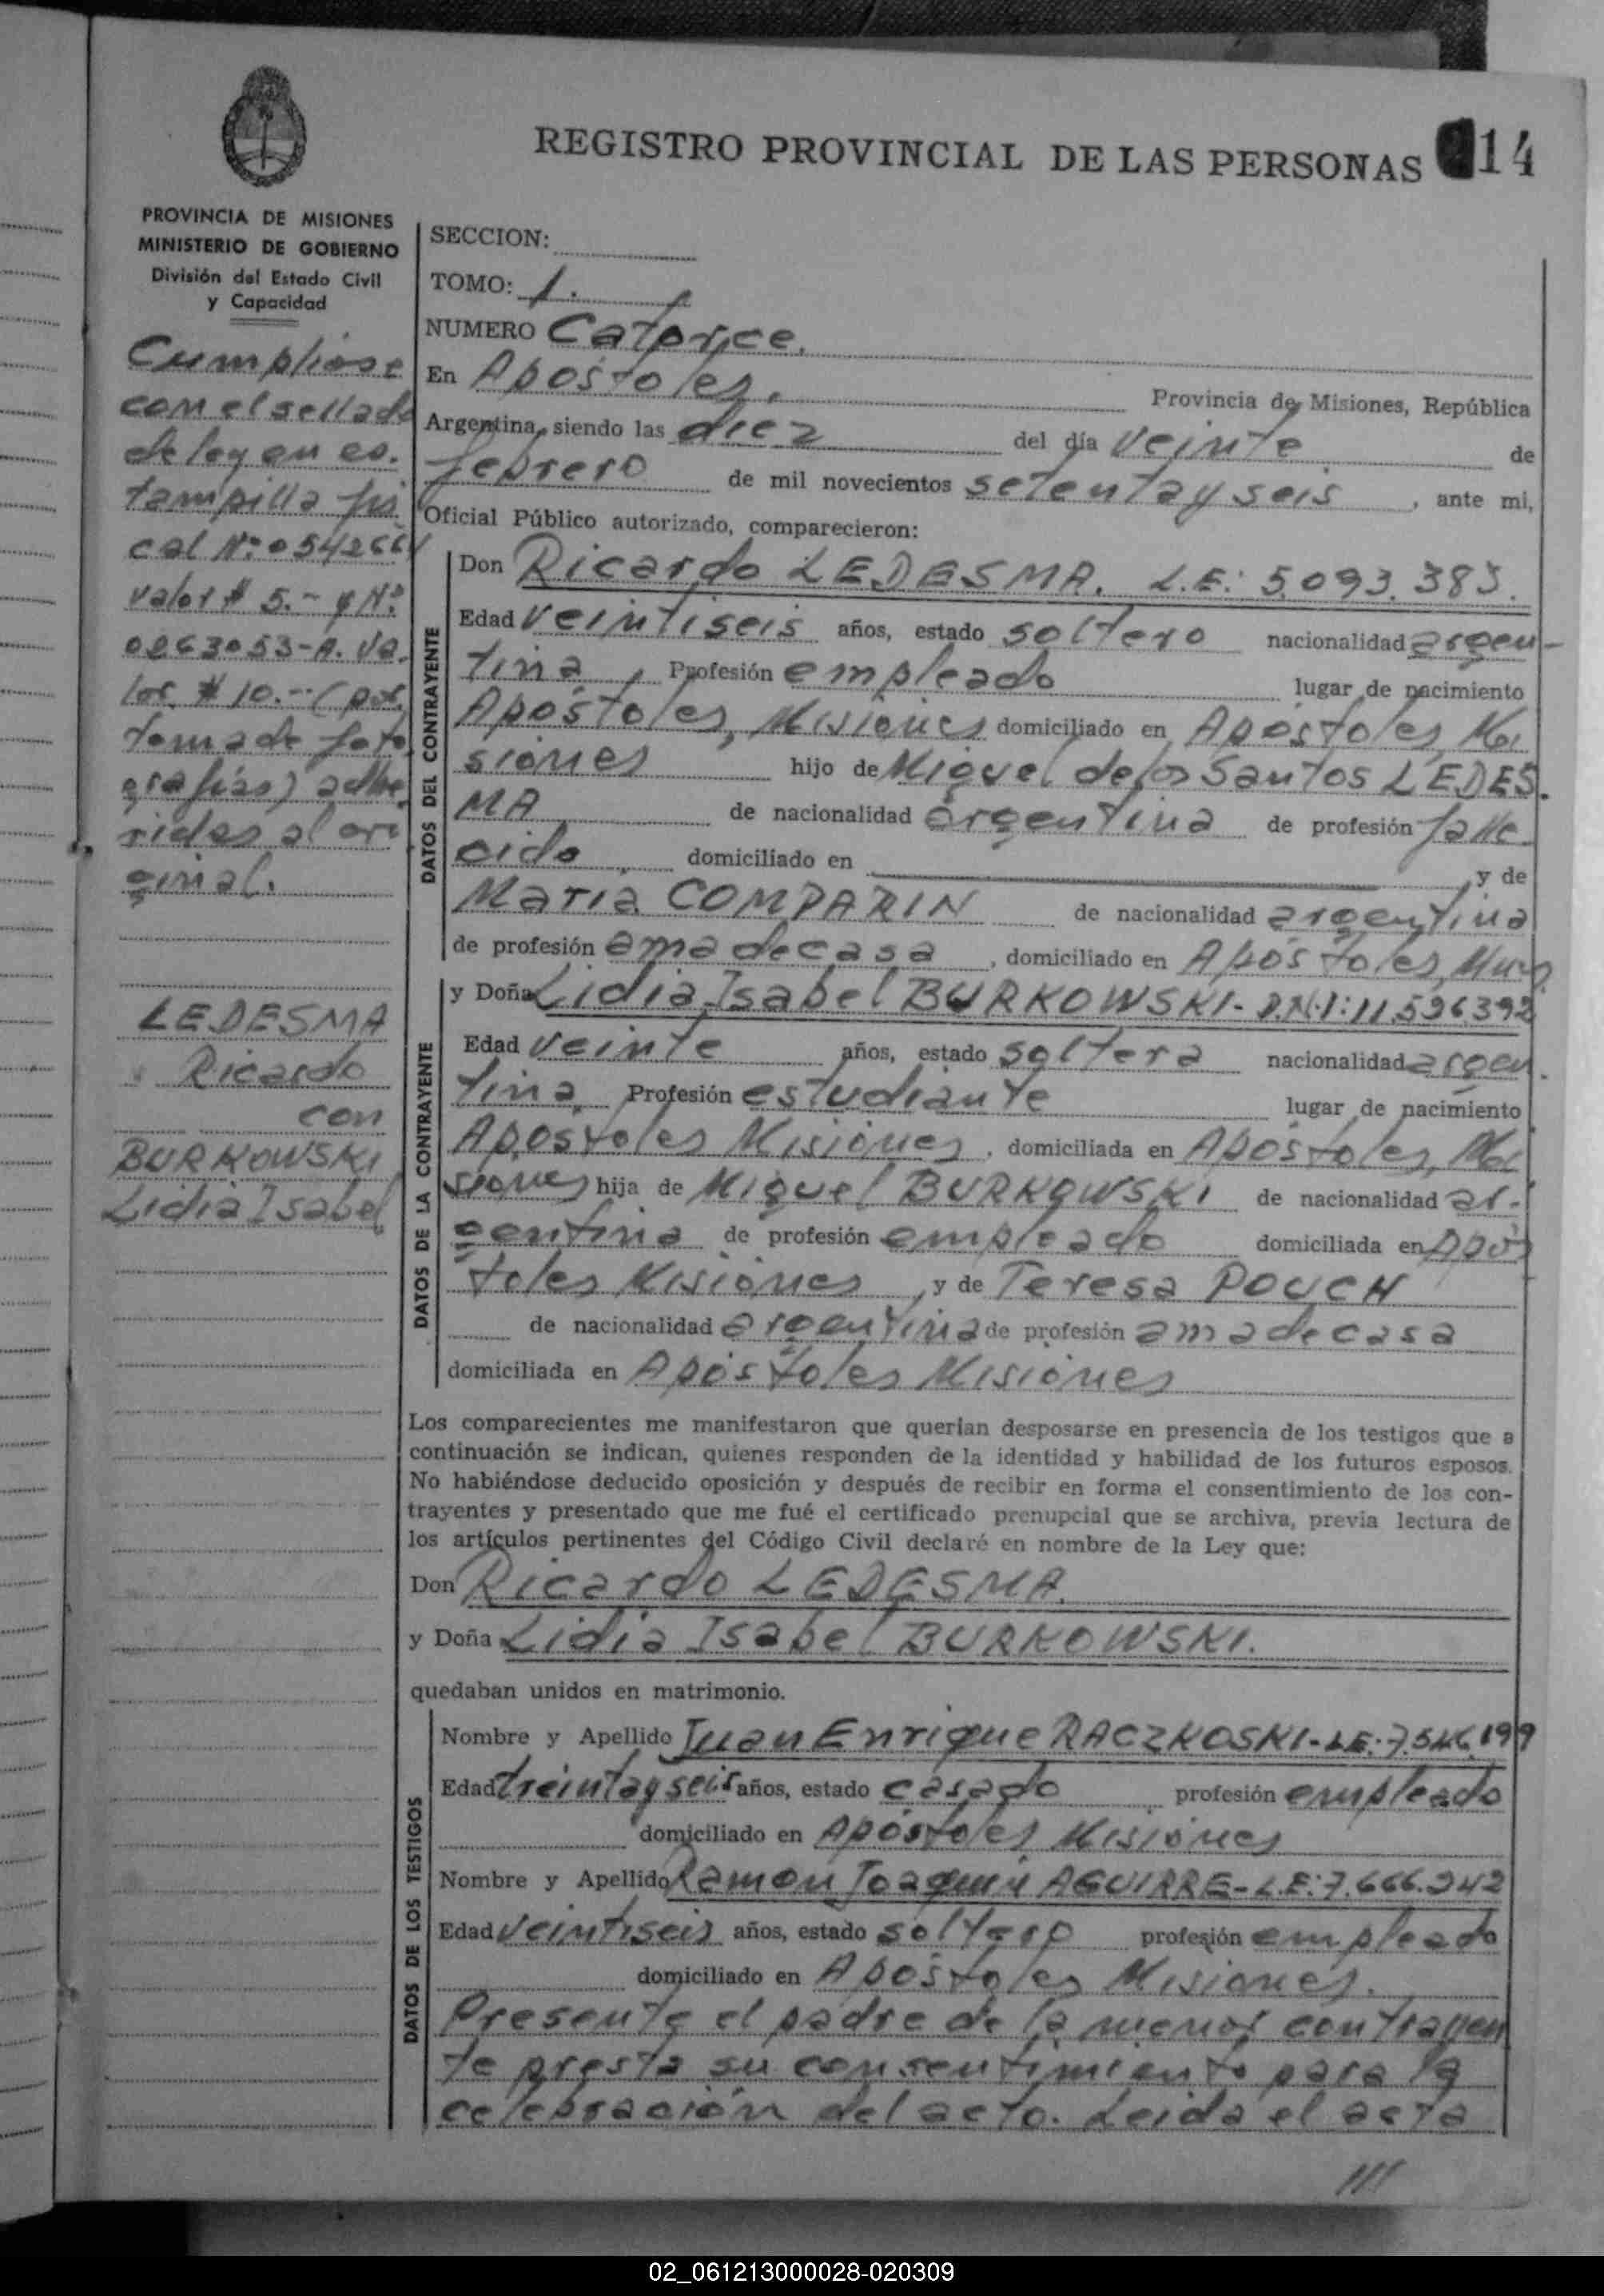 REGISTRO PROVINCIAL DE LAS PERSONAS 14
PROVINCIA DE MISIONES
MINISTERIO DE GOBIERNO
División del Estado Civil
y Capacidad
Cumpliose
con el sellado
de ley en es-
tampilla fis
cal Nº 054266
valor $ 5.- y Nº
0063053-A. Va.
lor $ 10.- (por
toma de foto
grafías) adhe
ridas al ori
ginal.
LEDESMA
Ricardo
con
BURKOWSKI
Lidia Isabel
SECCION:
TOMO: 1.
NUMERO Catorce.
En Apóstoles, Provincia de Misiones, República
Argentina, siendo las diez del día veinte de
febrero de mil novecientos setenta y seis, ante mi,
Oficial Público autorizado, comparecieron:
DATOS DEL CONTRAYENTE
Don Ricardo LEDESMA. L.E: 5.093.383.
Edad veintiseis años, estado soltero nacionalidad argen-
tina, Profesión empleado lugar de nacimiento
Apóstoles, Misiones domiciliado en Apóstoles, Mi
siones hijo de Miguel de los Santos LEDES.
MA de nacionalidad argentina de profesión falle
cido domiciliado en y de
María COMPARIN de nacionalidad argentina
de profesión ama de casa, domiciliado en Apóstoles, Mnes
DATOS DE LA CONTRAYENTE
y Doña Lidia Isabel BURKOWSKI - D.N.I: 11.526.392
Edad veinte años, estado soltera nacionalidad argen.
tina. Profesión estudiante lugar de nacimiento
Apóstoles Misiones, domiciliada en Apóstoles, Mi
siones hija de Miguel BURKOWSKI de nacionalidad ar-
gentina de profesión empleado domiciliada en Após
toles Misiones, y de Teresa POUCH
de nacionalidad argentina de profesión ama de casa
domiciliada en Apóstoles Misiones
Los comparecientes me manifestaron que querían desposarse en presencia de los testigos que a
continuación se indican, quienes responden de la identidad y habilidad de los futuros esposos.
No habiéndose deducido oposición y después de recibir en forma el consentimiento de los con-
trayentes y presentado que me fué el certificado prenupcial que se archiva, previa lectura de
los artículos pertinentes del Código Civil declaré en nombre de la Ley que:
Don Ricardo LEDESMA.
y Doña Lidia Isabel BURKOWSKI.
quedaban unidos en matrimonio.
DATOS DE LOS TESTIGOS
Nombre y Apellido Juan Enrique RACZKOSKI - L.E.: 7.546.199
Edad treinta y seis años, estado casado profesión empleado
domiciliado en Apóstoles Misiones
Nombre y Apellido Ramón Joaquín AGUIRRE - L.E: 7.666.242
Edad veintiseis años, estado soltero profesión empleado
domiciliado en Apóstoles Misiones.
Presente el padre de la menor contrayen
te presta su consentimiento para la
celebración del acto. Leida el acta
///
02_061213000028-020309